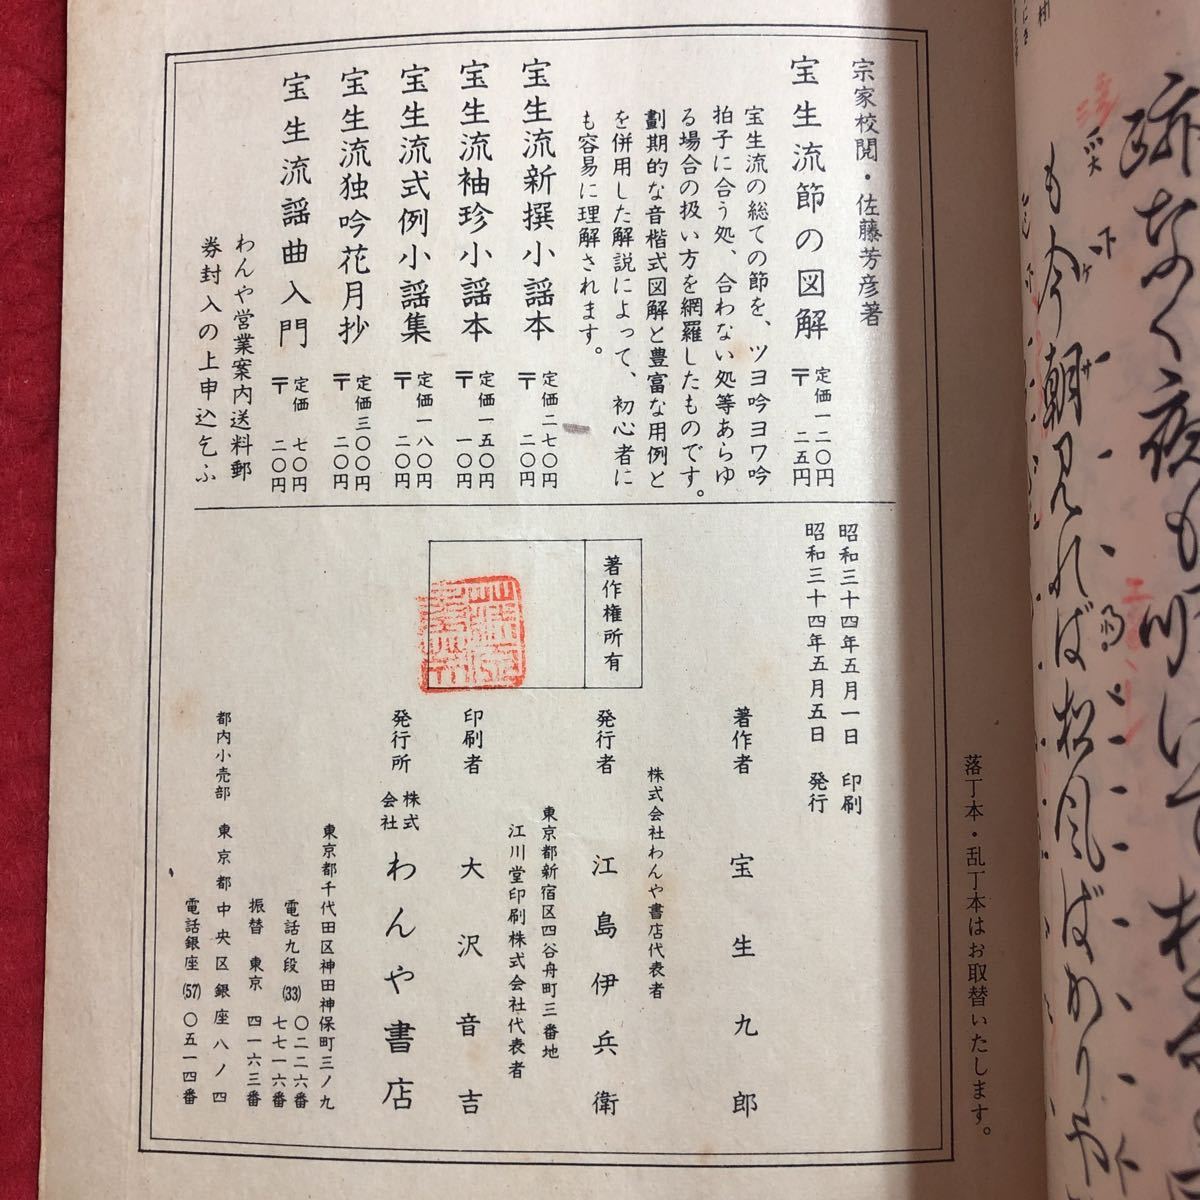 跡なく夜も明けて村
も今朝見れば松風ばかりや
落丁本・乱丁本はお取替いたします。
宗家校閲・佐藤芳彦著
宝生流節の図解 定価一二〇円 〒二五円
宝生流の総ての節を、ツヨ吟ヨワ吟
拍子に合う処、合わない処等あらゆ
る場合の扱い方を網羅したものです。
劃期的な音楷式図解と豊富な用例と
を併用した解説によって、初心者に
も容易に理解されます。
宝生流新撰小謡本 定価二七〇円 〒二〇円
宝生流袖珍小謡本 定価一五〇円 〒一〇円
宝生流式例小謡集 定価一八〇円 〒二〇円
宝生流独吟花月抄 定価三〇〇円 〒二〇円
宝生流謡曲入門 定価七〇円 〒二〇円
わんや営業案内送料郵
券封入の上申込乞ふ
昭和三十四年五月一日 印刷
昭和三十四年五月五日 発行
著作権所有
著作者 宝生九郎
株式会社わんや書店代表者
発行者 江島伊兵衛
東京都新宿区四谷舟町三番地
江川堂印刷株式会社代表者
印刷者 大沢音吉
発行所 株式会社 わんや書店
東京都千代田区神田神保町三ノ九
電話九段(33)〇二二六番
七七一六番
振替東京四一六三番
都内小売部 東京都中央区銀座八ノ四
電話銀座(57)〇五一四番